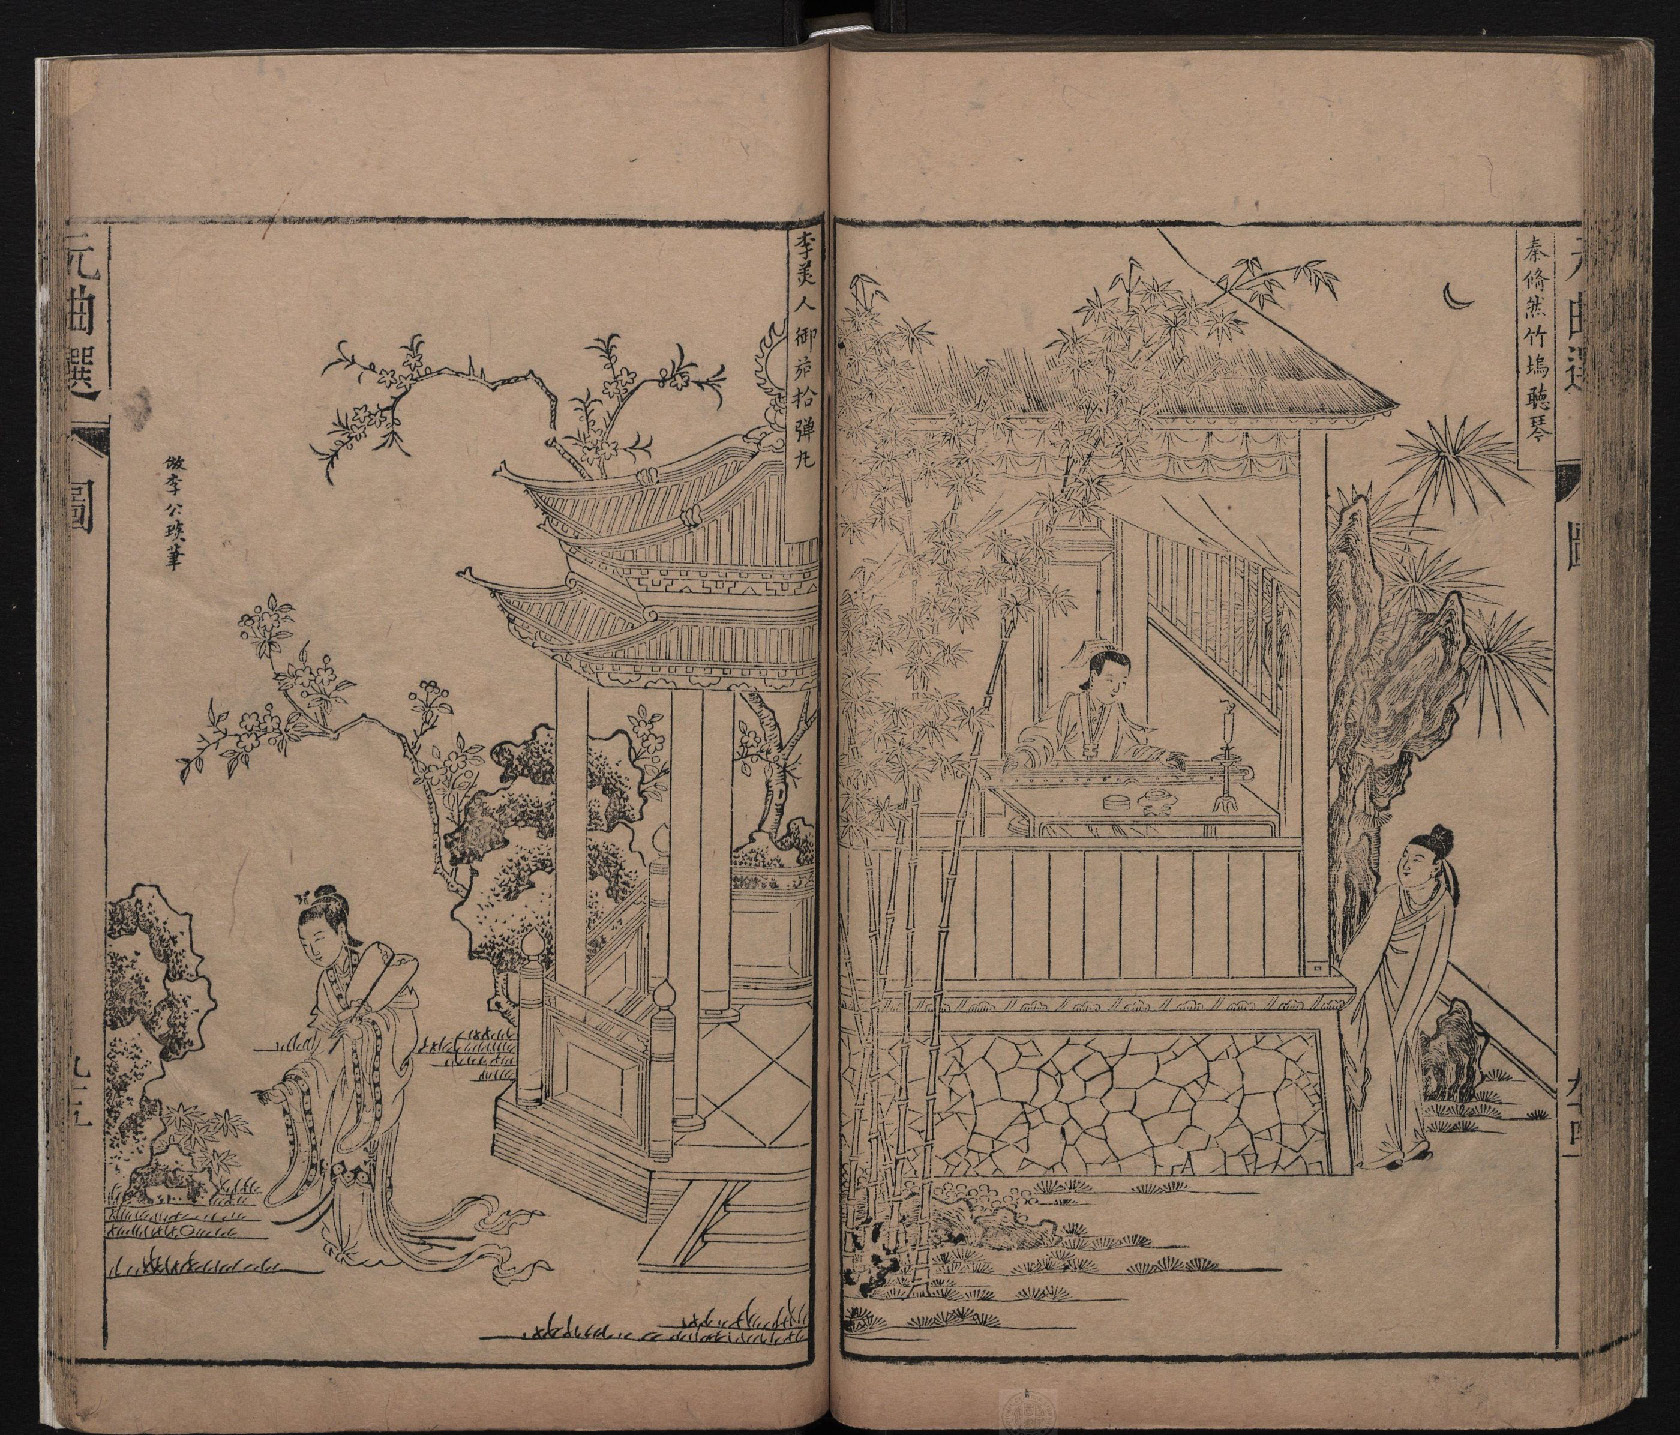 元曲選 圖
秦脩然竹塢聽琴
李美人御苑拾彈丸
倣李公琰筆
元曲選 圖 九十五